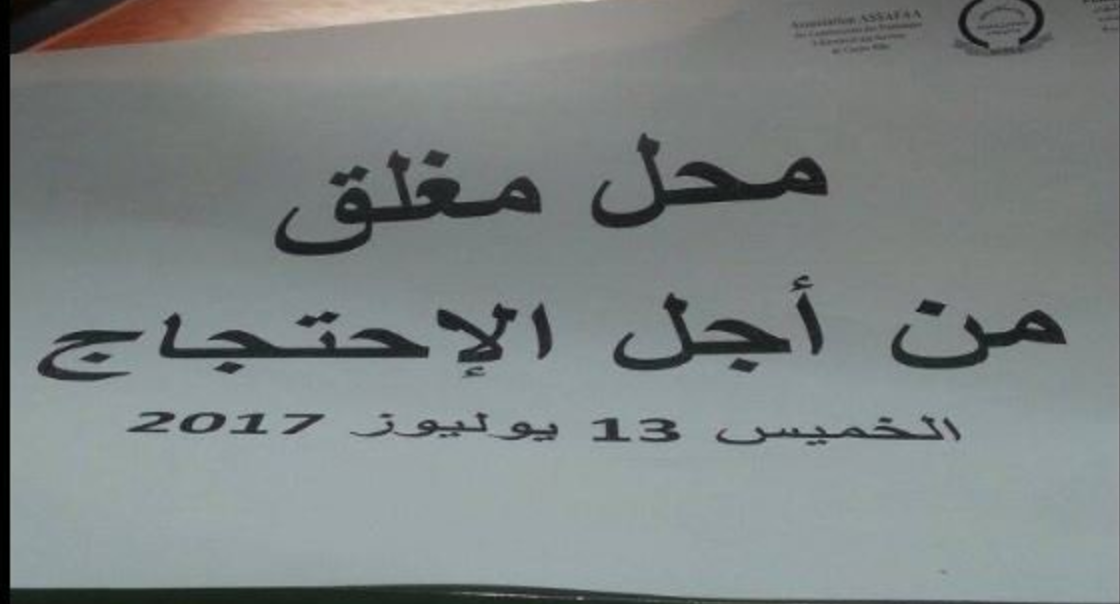 Association ASSAFAA
محل مغلق
من أجل الإحتجاج
الخميس 13 يوليوز 2017